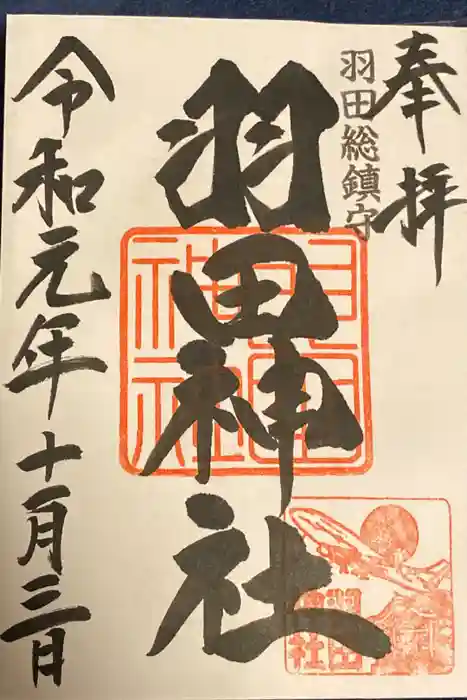 奉拝
羽田総鎮守
羽田神社
令和元年十一月三日
羽田神社
羽田神社